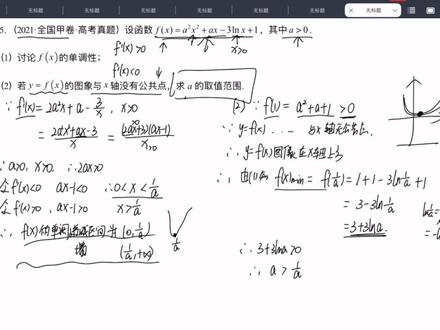 无标题 无标题 无标题 无标题 无标题 无标题 无标题
5. (2021·全国甲卷·高考真题) 设函数 f(x)=a²x²+ax-3lnx+1，其中 a>0．
f'(x)>0 x>0
(1) 讨论 f(x) 的单调性；
f'(x)<0
(2) 若 y=f(x) 的图象与 x 轴没有公共点，求 a 的取值范围．
∵ f'(x)=2a²x+a-3/x, x>0
=(2a²x²+ax-3)/x=(2ax+3)(ax-1)/x
x>0
∵a>0, x>0, ∴2ax>0
令f'(x)<0 ax-1<0 ∴0<x<1/a
令f'(x)>0, ax-1>0 x>1/a
∴ f(x)的单调减区间为 (0,1/a)
增 (1/a,+∞)
1/a
(2) ∵ f(1)=a²+a+1>0
∵ y=f(x) ... 与x轴无公共点.
∴ y=f(x)图象在x轴上方
由(1)知 f(x)min=f(1/a)=1+1-3ln1/a+1
=3-3ln1/a
=3+3lna
∴ 3+3lna>0
∴ a>1/a
ln1/a
=-